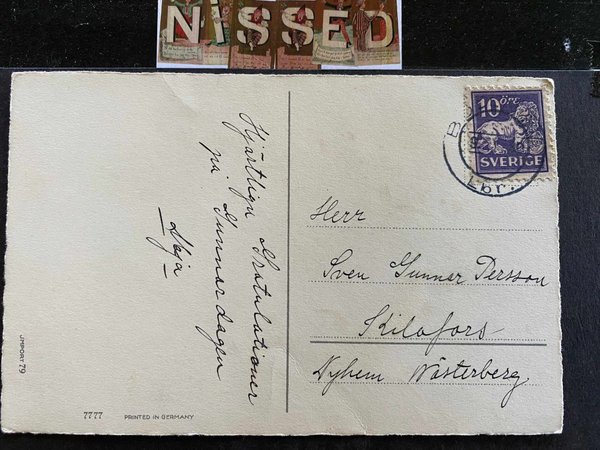 NiSSED
10 öre
SVERIGE
Lbr.
Hjärtliga Gratulationer
på Gunnar dagen
Maja
Herr
Sven Gunnar Persson
Kilafors
Nyhem Wästerberg.
IMPORT 79
7777 PRINTED IN GERMANY